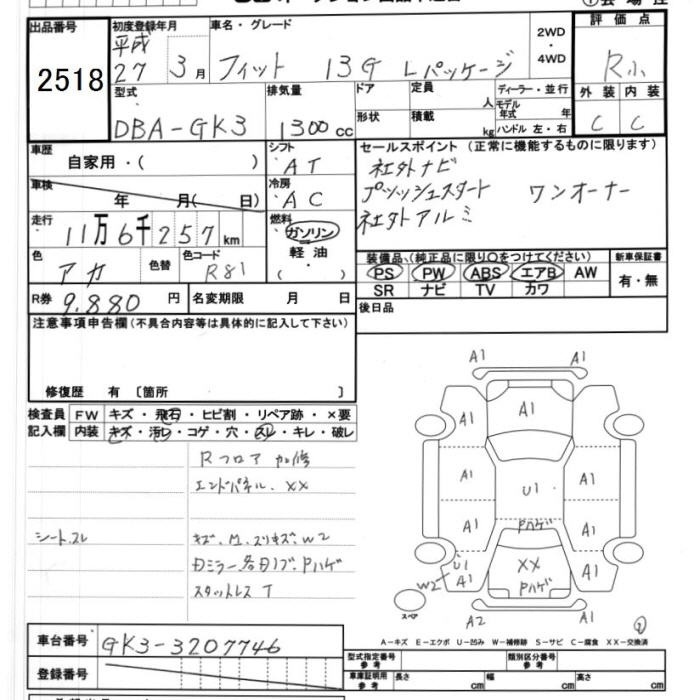 出品番号
2518
初度登録年月
平成
27 3月
車名・グレード
フィット 13G Lパッケージ
2WD
・
4WD
評価点
R小
外装 内装
C C
型式
DBA-GK3
排気量
1300cc
ドア
形状
定員 人
積載 kg
ディーラー・並行
モデル年式 年
ハンドル 左・右
車歴
自家用・( )
シフト
AT
セールスポイント (正常に機能するものに限ります)
社外ナビ
プッシュスタート ワンオーナー
社外アルミ
車検
年 月( 日)
冷房
AC
走行
11万6千257km
燃料
ガソリン
軽油
色
アカ
色替
色コード
R81
装備品、(純正品に限り○をつけてください)
PS PW ABS エアB AW
SR ナビ TV カワ
新車保証書
有・無
R券 9.880円
名変期限 月 日
後日品
注意事項申告欄(不具合内容等は具体的に記入して下さい)
修復歴 有 〔箇所 〕
検査員
記入欄
FW キズ・飛石・ヒビ割・リペア跡・×要
内装 キズ・汚レ・コゲ・穴・スレ・キレ・破レ
Rフロア 加修
エンドパネル.XX
シートスレ
キズ.M.スリキズ.W2
Dミラー各ロノブ.Pハゲ
スタットレスT
A1 A1
A1
A1 A1
A1 A1
U1
A1 A1
Pハゲ
U1
W2 A1
XX
Pハゲ
A1
A2 A1
スペア
A-キズ E-エクボ U-凹み W-補修跡 S-サビ C-腐食 XX-交換済
車台番号
GK3-3207746
登録番号
型式指定番号
参考
類別区分番号
参考
車庫証明用
参考
長さ cm
幅 cm
高さ cm